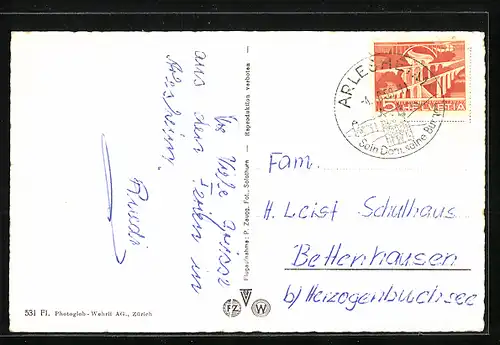 Viele Grüsse
aus den Ferien in
Arlesheim.
Ruedi
531 Fl. Photoglob-Wehrli AG., Zürich
Flugaufnahme: P. Zaugg, Fot., Solothurn — Reproduktion verboten —
FZ
W
ARLESHEIM
Sein Dom, seine Burgen
5 HELVETIA
Fam.
H. Leist Schulhaus
Bettenhausen
b/ Herzogenbuchsee